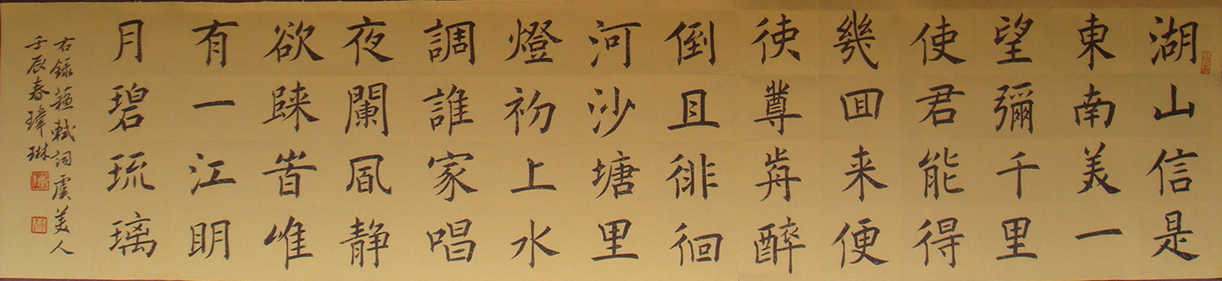 湖山信是
東南美一
望彌千里
使君能得
幾回来便
使尊前醉
倒且徘徊
河沙塘里
燈初上水
調誰家唱
夜闌風静
欲歸時唯
有一江明
月碧琉璃
右錄蘇軾詞虞美人
壬辰春瑋琳